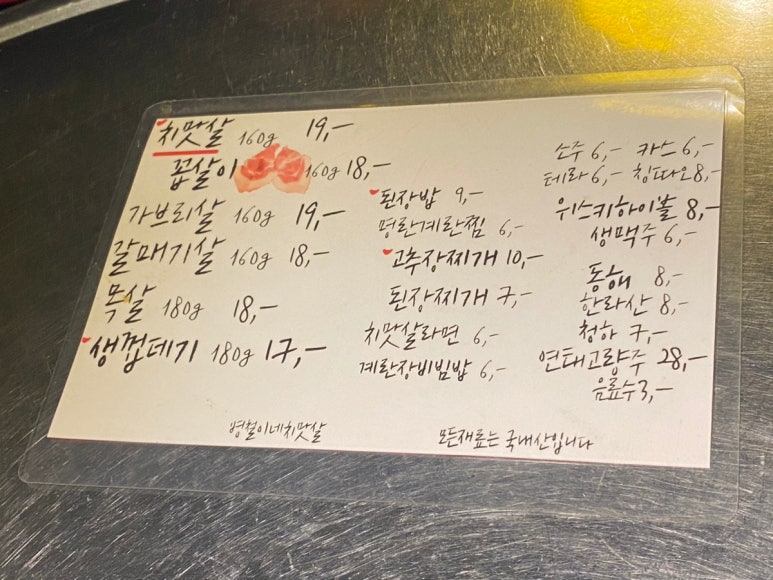 치맛살 160g 19,-
꼽살이 160g 18,-
가브리살 160g 19,-
갈매기살 160g 18,-
목살 180g 18,-
생껍데기 180g 17,-
된장밥 9,-
명란계란찜 6,-
고추장찌개 10,-
된장찌개 7,-
치맛살라면 6,-
계란장비빔밥 6,-
소주 6,- 카스 6,-
테라 6,- 칭따오 8,-
위스키하이볼 8,-
생맥주 6,-
동해 8,-
한라산 8,-
청하 7,-
연태고량주 28,-
음료수 3,-
병철이네치맛살
모든재료는 국내산입니다